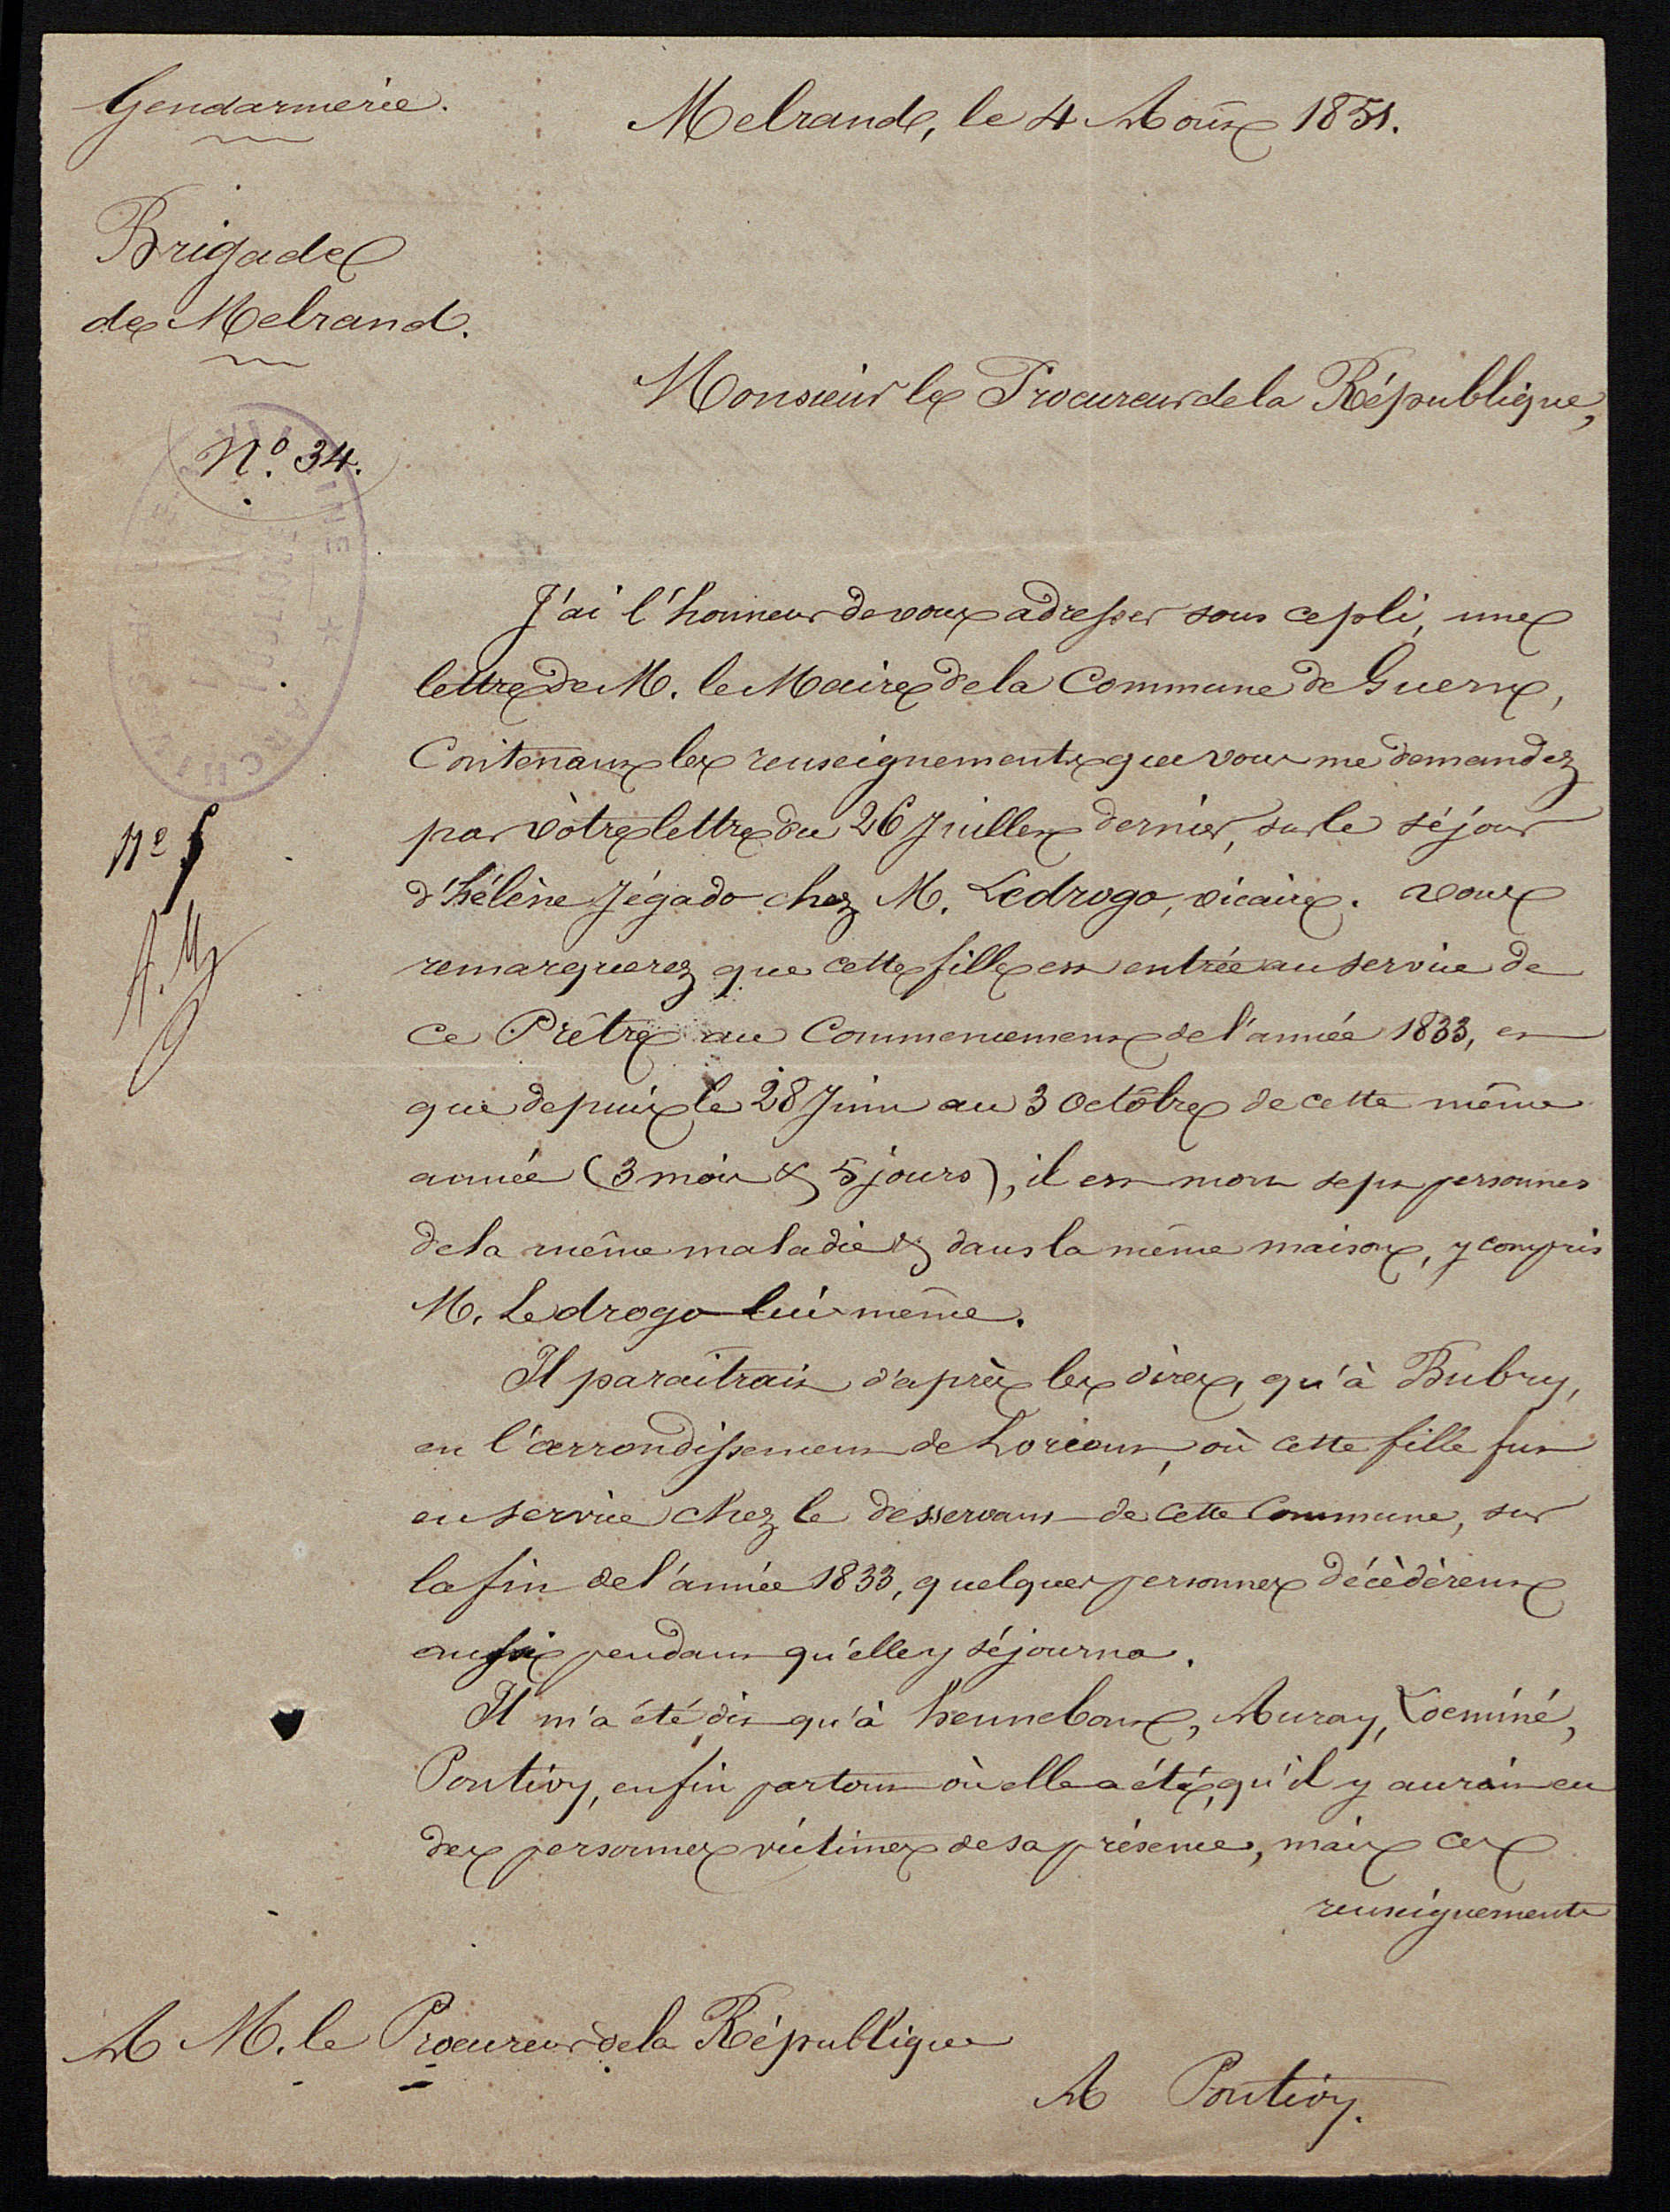 Gendarmerie.
Melrand, le 4 Août 1851.
Brigade
de Melrand.
Monsieur le Procureur de la République,
N.º 34.
J'ai l'honneur de vous adresser sous ce pli, une
lettre de M. le Maire de la Commune de Guern,
Contenant les renseignements que vous me demandez
par vòtre lettre du 26 Juillet dernier, sur le séjour
d'hélène Jégado chez M. Ledrogo, vicaire. vous
remarquerez que cette fille est entrée au service de
ce Prêtre au Commencement de l'année 1833, et
que depuis le 28 Juin au 3 Octobre de cette même
année (3 mois & 5 jours), il est mort sept personnes
de la même maladie & dans la même maison, y compris
M. Ledrogo lui même.
Il paraîtrait d'après les dires, qu'à Bubry,
en l'arrondissement de Lorient, où cette fille fut
en service chez le desservant de cette Commune, sur
la fin de l'année 1833, quelques personnes décèdèrent
aussi pendant qu'elle y séjourna.
Il m'a été dit qu'à hennebont, Auray, Locminé,
Pontivy, enfin partout où elle a été, qu'il y aurait eu
des personnes victimes de sa présence, mais ces
renseignements
A M. le Procureur de la République
A Pontivy.